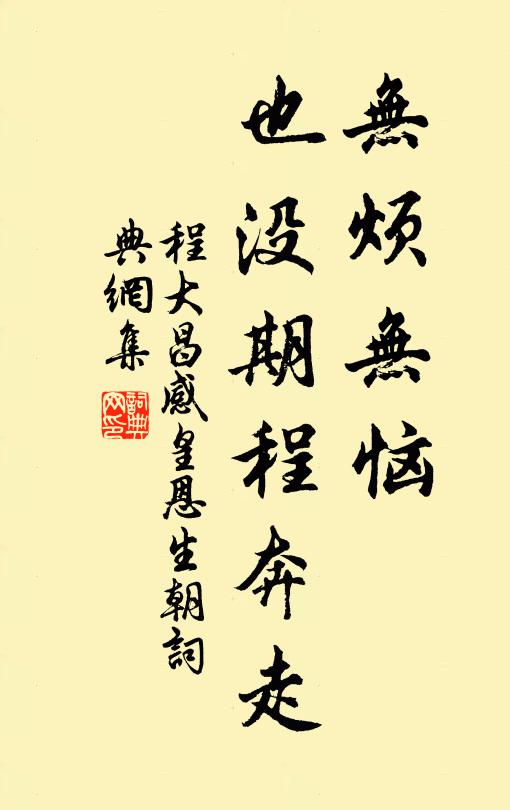 無烦無恼
也没期程奔走
程大昌感皇恩生朝詞
典網集
詞典網印